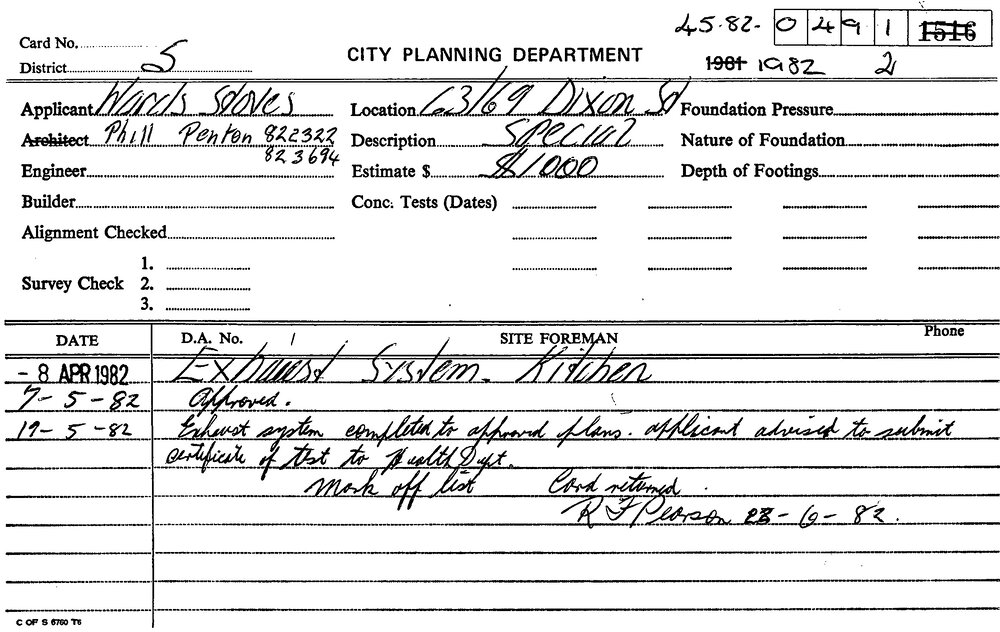 45-82- 0 4 9 1 1516
Card No.
District 5
CITY PLANNING DEPARTMENT
1981 1982 2
Applicant Wards Stoves Location 63/69 Dixon St Foundation Pressure
Architect Phill Penton 822322 Description SPECIAL Nature of Foundation
823694
Engineer Estimate $ $1000 Depth of Footings
Builder Conc. Tests (Dates)
Alignment Checked
Survey Check 1.
2.
3.
DATE D.A. No. SITE FOREMAN Phone
- 8 APR 1982 Exhaust System. Kitchen
7-5-82 Approved.
19-5-82 Exhaust system completed to approved plans. applicant advised to submit
certificate of test to Health Dept.
Mark off list Card returned.
R F Pearson 28-6-82.
C OF S 6760 T6